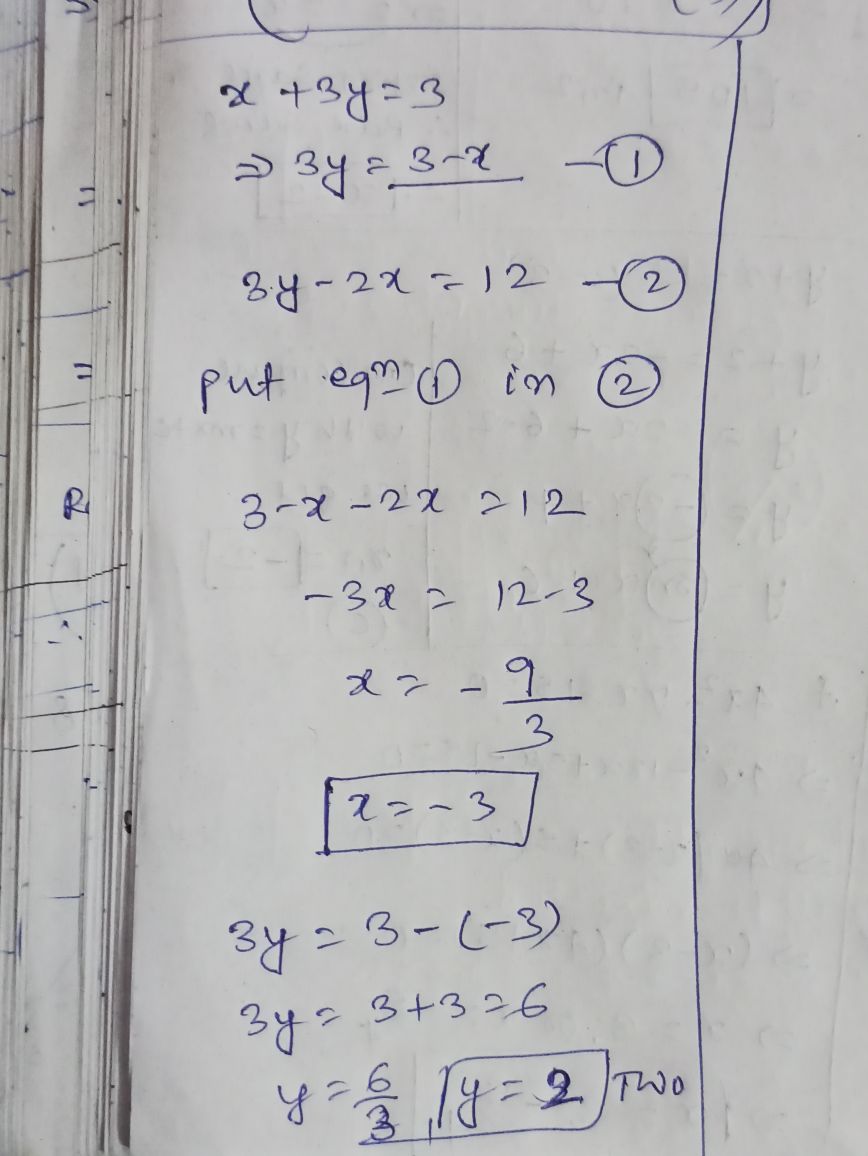 x + 3y = 3
⇒ 3y = 3-x —①
3y - 2x = 12 —②
put eqn ① in ②
3-x-2x = 12
-3x = 12-3
x = -9/3
x = -3
3y = 3-(-3)
3y = 3+3 = 6
y = 6/3, y = 2 TWO
=
=
R